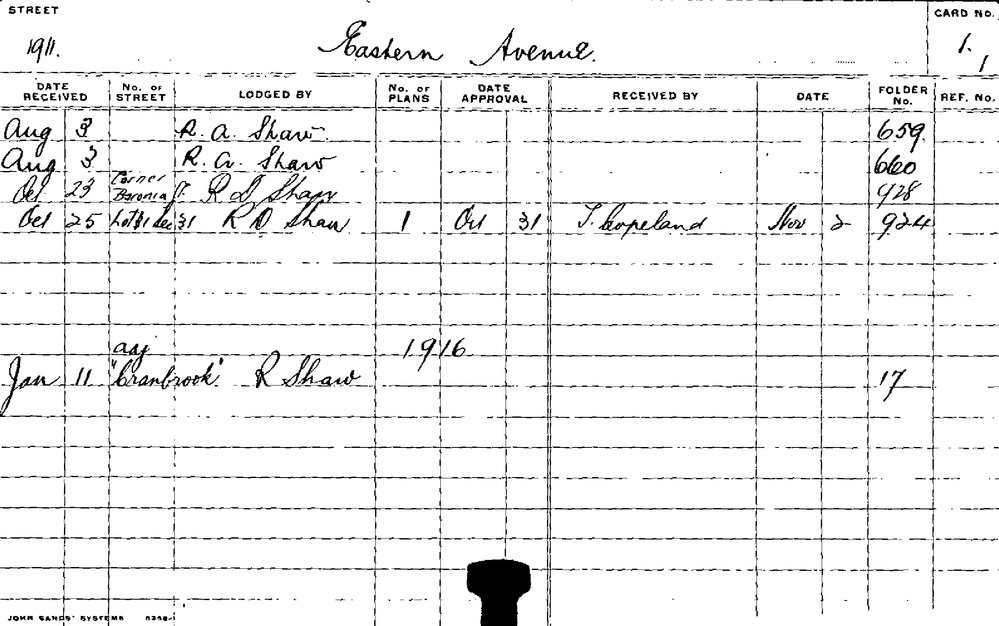 STREET
CARD No.
1911.
Eastern Avenue.
1.
1
DATE RECEIVED No. OF STREET LODGED BY No. OF PLANS DATE APPROVAL RECEIVED BY DATE FOLDER No. REF. No.
Aug 3 R. A. Shaw. 659
Aug 3 R. A. Shaw 660
Oct 23 Corner Baronia R D Shaw 928
Oct 25 Lot 31 Sec 31 R D Shaw 1 Oct 31 T. Copeland Nov 2 924
1916
adj
Jan 11 "Cranbrook" R Shaw 17
JOHN SANDS' SYSTEMS